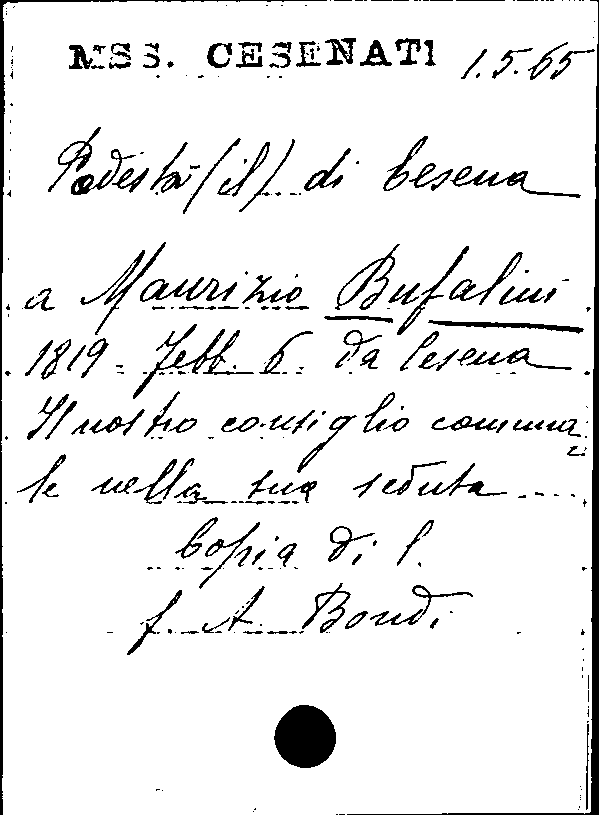 MSS. CESENATI 1.5.65
Podestà (il) di Cesena
a Maurizio Bufalini
1819. Febb. 6. da Cesena
Il nostro consiglio comuna=
le nella sua seduta ....
Copia di l.
f. A. Bondi